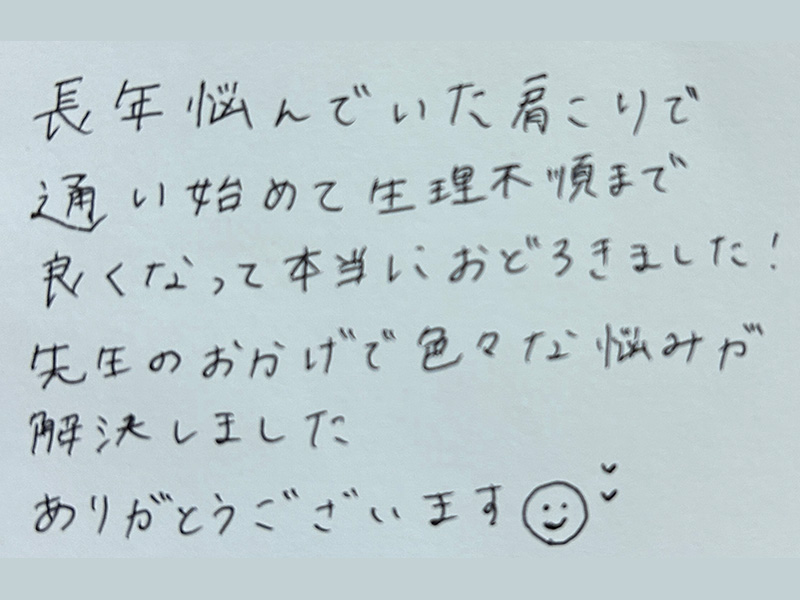 長年悩んでいた肩こりで
通い始めて生理不順まで
良くなって本当におどろきました！
先生のおかげで色々な悩みが
解決しました
ありがとうございます